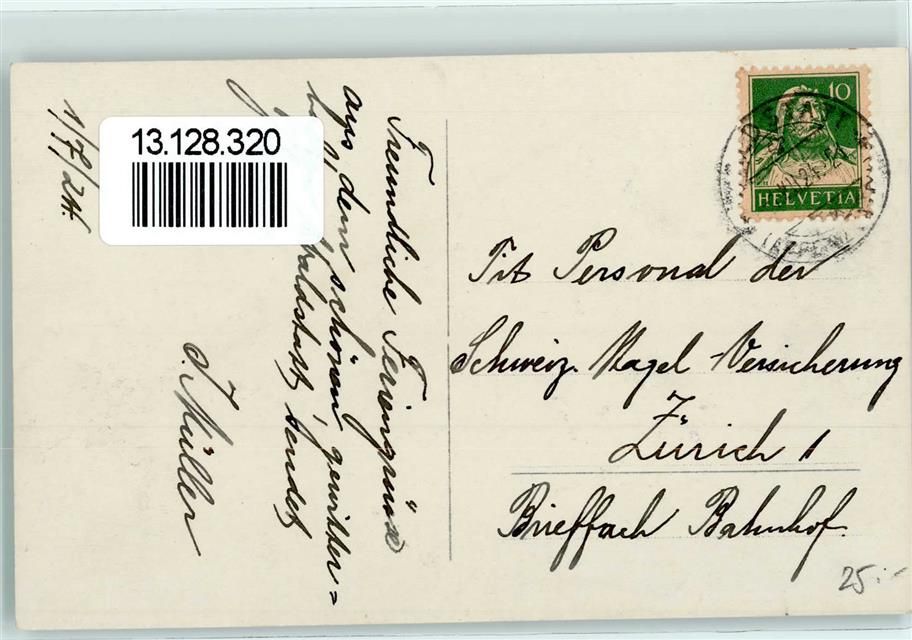 13.128.320
1/7/24.
Freundliche Feriengrüsse
aus dem schönen, gewitter=
Waldstatt sendet
J. Müller
10
HELVETIA
Tit Personal der
Schweiz. Hagel-Versicherung
Zürich 1
Brieffach Bahnhof.
25.-